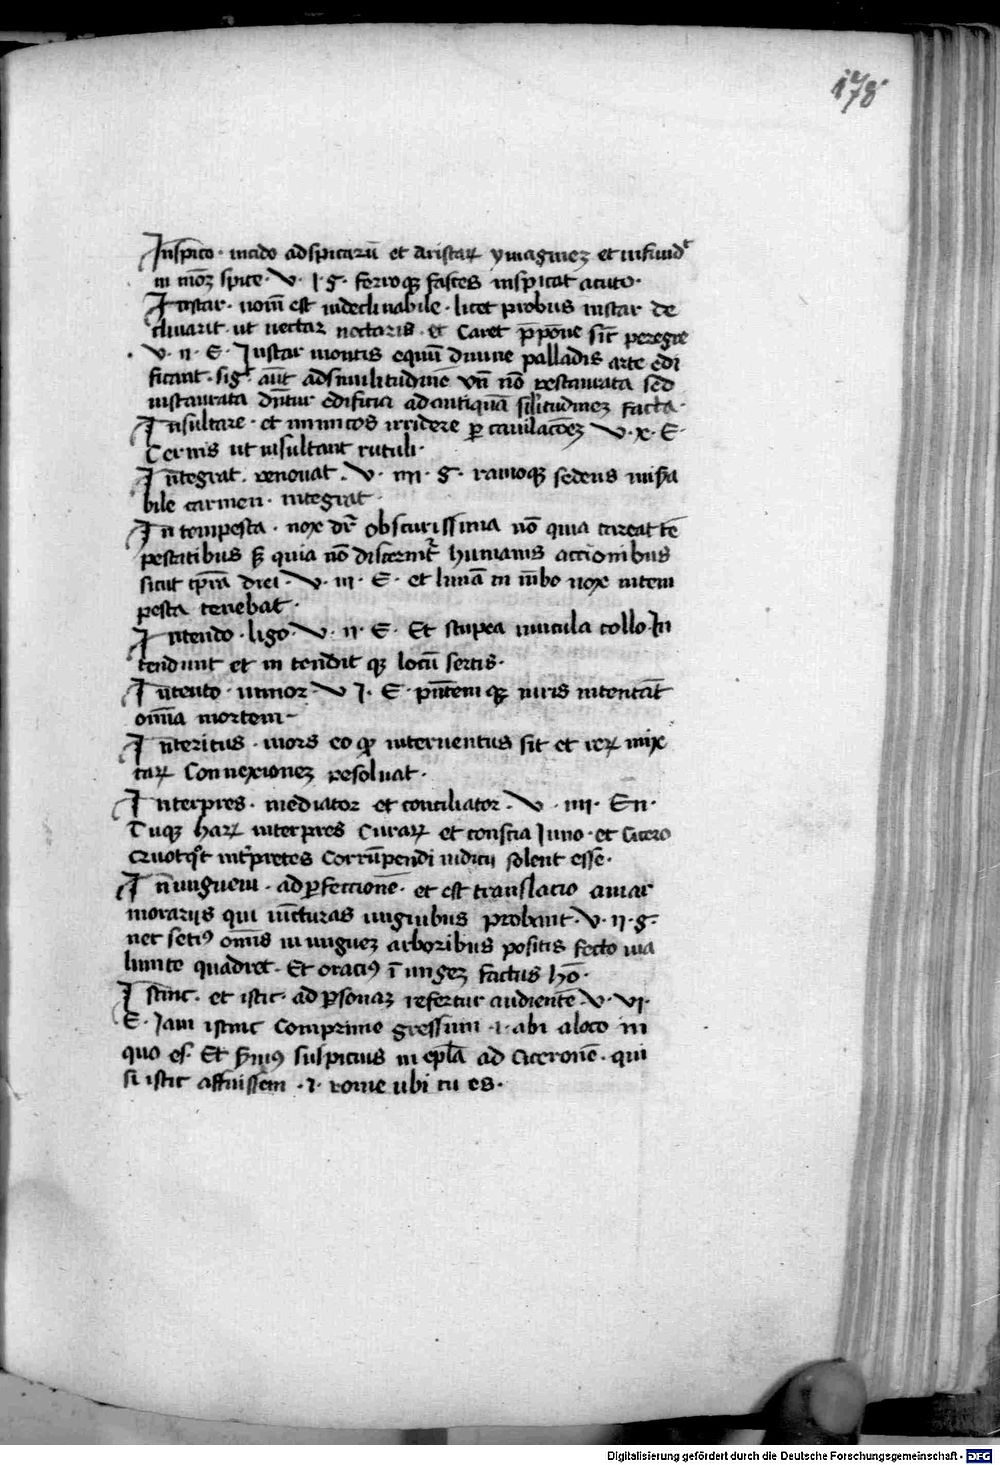 178
Inspico · incido ad spicarū et aristaꝝ ymaginez et infundr̃
in moꝝ spice · V · I · g · ferroqꝫ faces inspicat acuto ·
Instar · nom̄ est indeclinabile · licet probus instar de
clinarit · ut nectar nectaris · et Caret p̄pōne sic̄ peregre
V · ii · E · Instar montis equū diuine palladis arte edi
ficant · sig᷑ aūt adsimilitudinē vn̄ nō restaurata sed
instaurata dn̄tur edificia ad antiquā sil̄itudinez facta ·
Insultare · et inimicos irridere ꝑ cauilacōez V · x · E ·
Cernis ut insultant rutuli ·
Integrat · renouat · V · iiii · g · ramoqꝫ sedens mis̄a
bile carmen · integrat
In tempesta · nox dr̃ obscurissima nō quia careat tē
pestatibus sꝫ quia nō discernit᷑ humanis actionibus
sicut tp̄ra diei · V · iii · E · et lunā in nībo nox intem
pesta tenebat ·
Intendo · ligo · V · ii · E · Et stupea uincula collo In
tendunt et in tendit qꝫ locū sertis ·
Intento · minor · V I · E · pn̄tem qꝫ uiris intentāt
omīa mortem -
Interitus · mors eo qꝫ interuentus sit et reꝝ mix
taꝝ Connexionez resoluat ·
Interpres · mediator et conciliator · V · iiii · En̄ ·
Tuqꝫ haꝝ interpres Curaꝝ et conscia Iuno · et Cicero
Quotqt̄ intp̄retes Corrūpendi iudicij solent essē ·
In unguem · ad ꝑfeccionē · et est translacio a mar
morarijs qui iuncturas unguibus probant · V · ii · g ·
nec setiꝰ omīs in unguez arboribus positis secto uia
limite quadret · Et oraciꝰ ī ungez factus hō ·
Istinc · et istic · ad ꝑsonaz refertur audientē V · VI ·
E · Iam istinc Comprime gressum · i · abi a loco in
quo es · Et s̄uiꝰ sulpicius in epl̄a ad Ciceronē · qui
si istic affuissem · i · rome ubi tu es ·
Digitalisierung gefördert durch die Deutsche Forschungsgemeinschaft - DFG